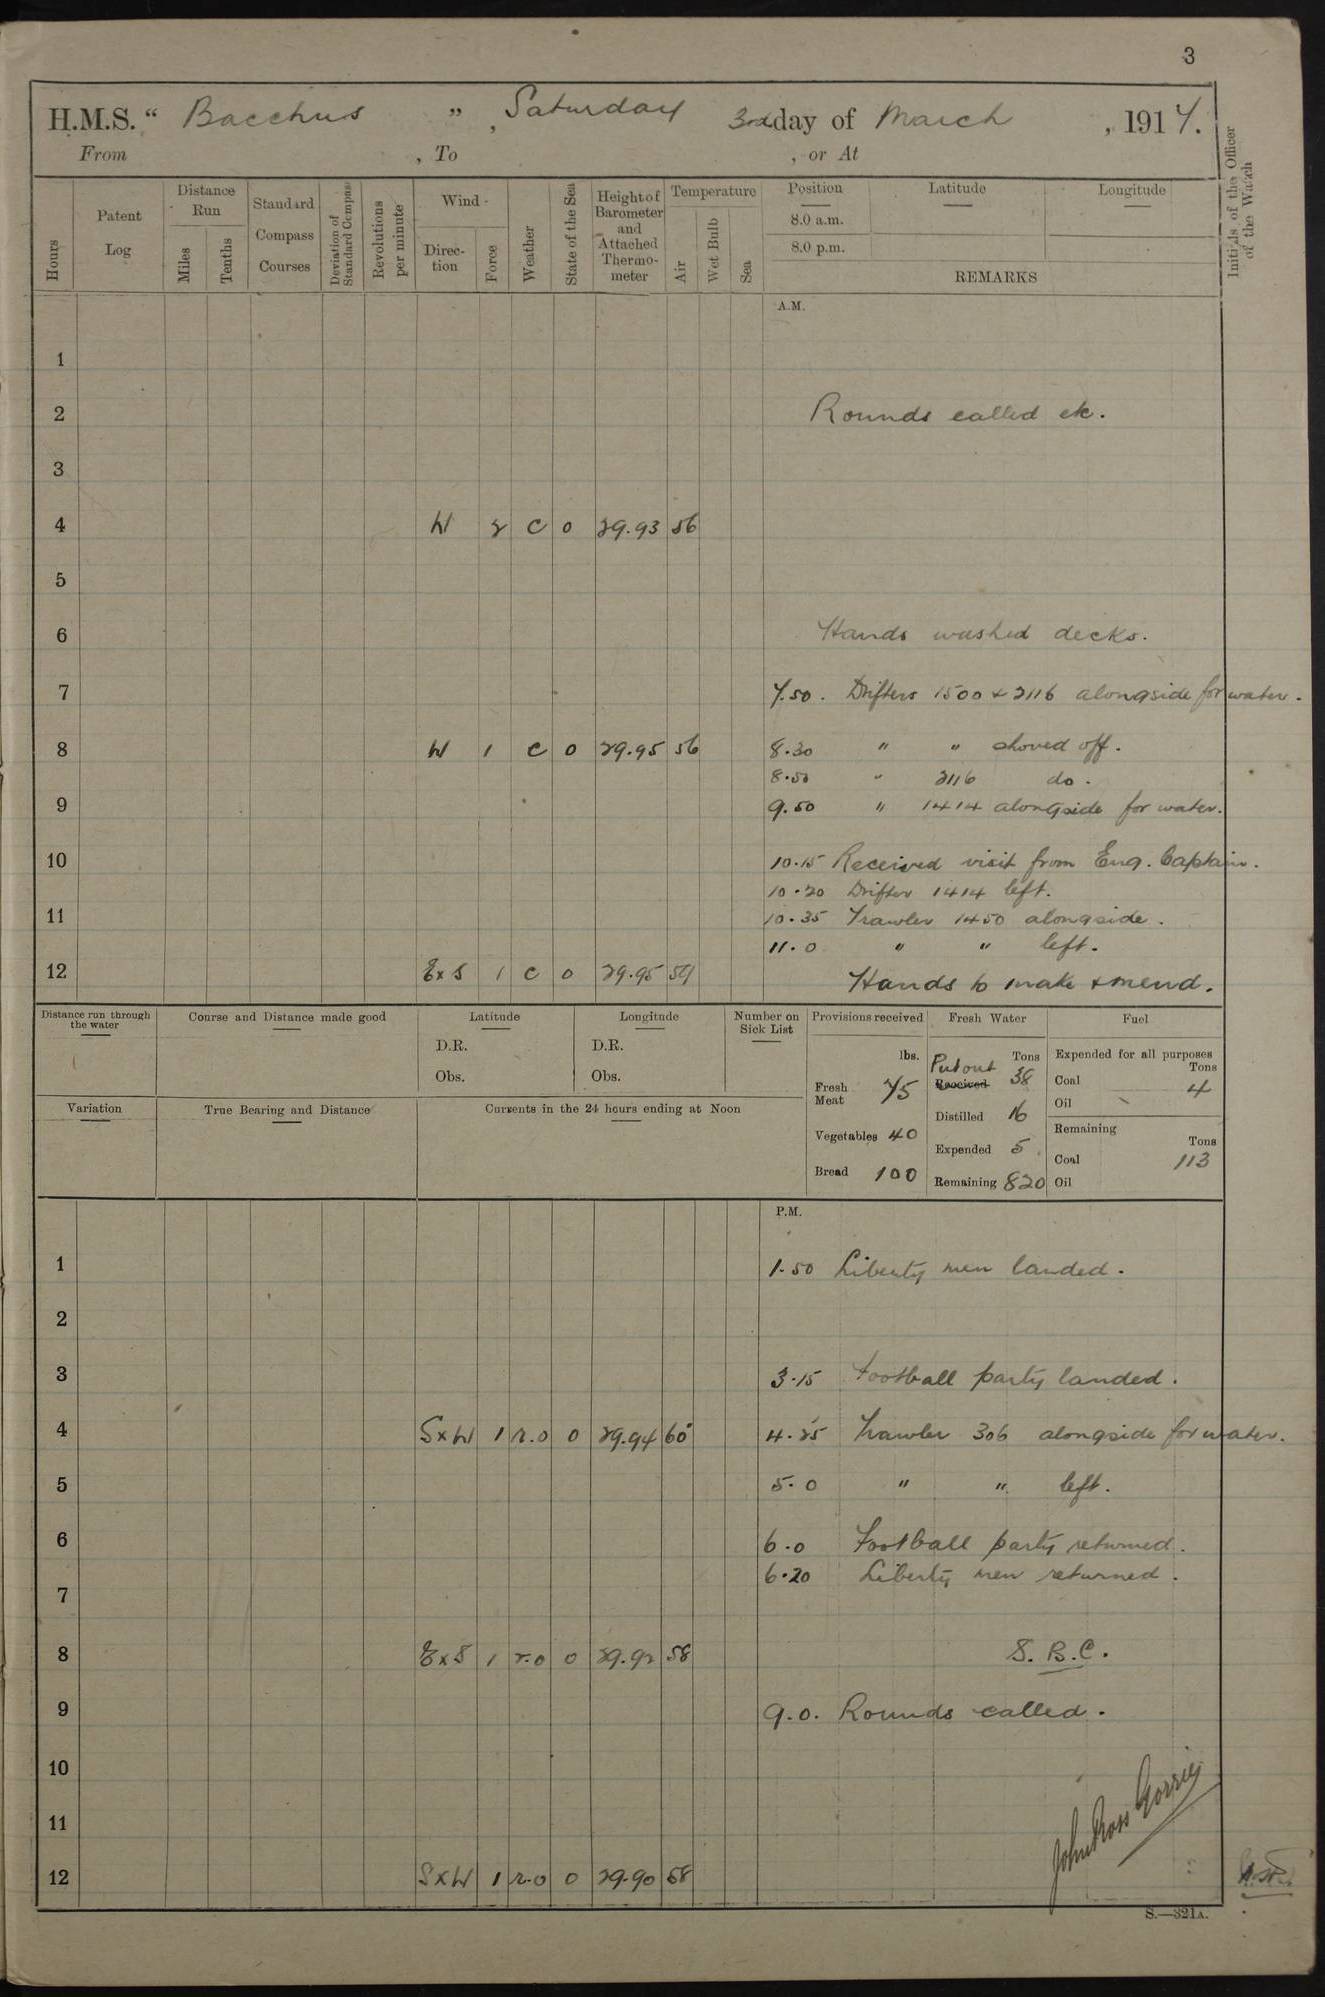 3
H.M.S. "Bacchus", Saturday 3rd day of March, 1917.
From , To , or At
Hours
Patent Log
Distance Run
Miles
Tenths
Standard Compass Courses
Deviation of Standard Compass
Revolutions per minute
Wind
Direction
Force
Weather
State of the Sea
Height of Barometer and Attached Thermometer
Temperature
Air
Wet Bulb
Sea
Position Latitude Longitude
8.0 a.m.
8.0 p.m.
REMARKS
Initials of the Officer of the Watch
A.M.
1
2 Rounds called etc.
3
4 W 2 c 0 29.93 56
5
6 Hands washed decks.
7 7.50. Drifters 1500 & 2116 alongside for water.
8 W 1 c 0 29.95 56 8.30 " " shoved off.
8.50 " 2116 do.
9 9.50 " 1414 alongside for water.
10 10.15 Received visit from Eng. Captain.
10.20 Drifter 1414 left.
11 10.35 Trawler 1450 alongside.
11.0 " " left.
12 ExS 1 c 0 29.95 59 Hands to make & mend.
Distance run through the water
Course and Distance made good
Latitude
D.R.
Obs.
Longitude
D.R.
Obs.
Number on Sick List
Provisions received
lbs.
Fresh Meat 75
Vegetables 40
Bread 100
Fresh Water
Tons
Put out
Received 38
Distilled 16
Expended 5
Remaining 820
Fuel
Expended for all purposes
Tons
Coal 4
Oil
Remaining
Tons
Coal 113
Oil
Variation
True Bearing and Distance
Currents in the 24 hours ending at Noon
P.M.
1 1.50 Liberty men landed.
2
3 3.15 Football party landed.
4 SxW 1 r.o 0 29.94 60 4.25 Trawler 306 alongside for water.
5 5.0 " " left.
6 6.0 Football party returned.
6.20 Liberty men returned.
7
8 ExS 1 r.o 0 29.92 58 S.B.C.
9 9.0. Rounds called.
10
11
John Ross Gorrie
12 SxW 1 r.o 0 29.90 58
S.—321A.